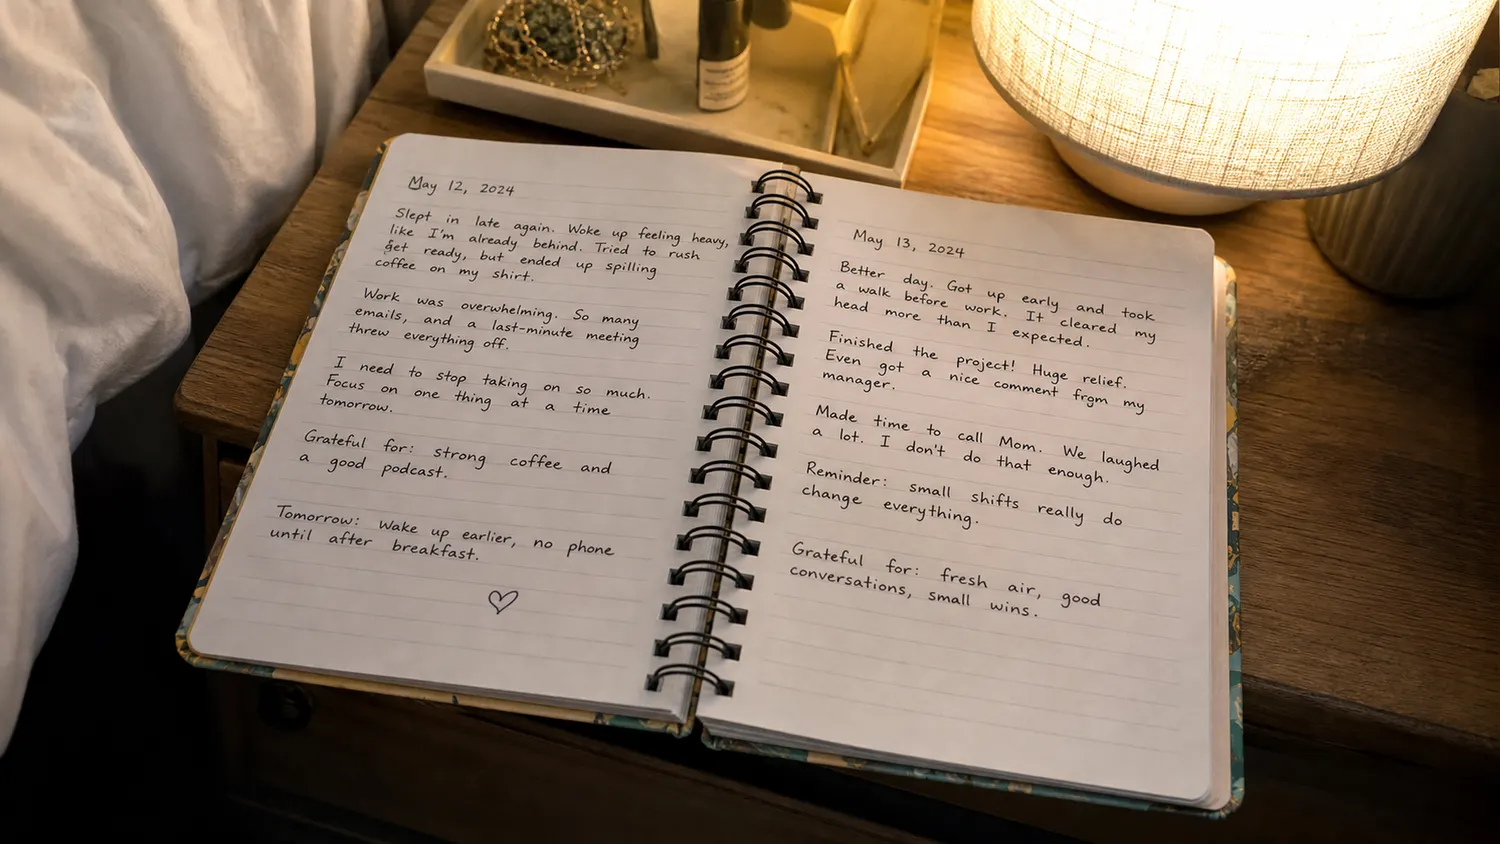 May 12, 2024
Slept in late again. Woke up feeling heavy,
like I'm already behind. Tried to rush
get ready, but ended up spilling
coffee on my shirt.
Work was overwhelming. So many
emails, and a last-minute meeting
threw everything off.
I need to stop taking on so much.
Focus on one thing at a time
tomorrow.
Grateful for: strong coffee and
a good podcast.
Tomorrow: Wake up earlier, no phone
until after breakfast.
May 13, 2024
Better day. Got up early and took
a walk before work. It cleared my
head more than I expected.
Finished the project! Huge relief.
Even got a nice comment from my
manager.
Made time to call Mom. We laughed
a lot. I don't do that enough.
Reminder: small shifts really do
change everything.
Grateful for: fresh air, good
conversations, small wins.